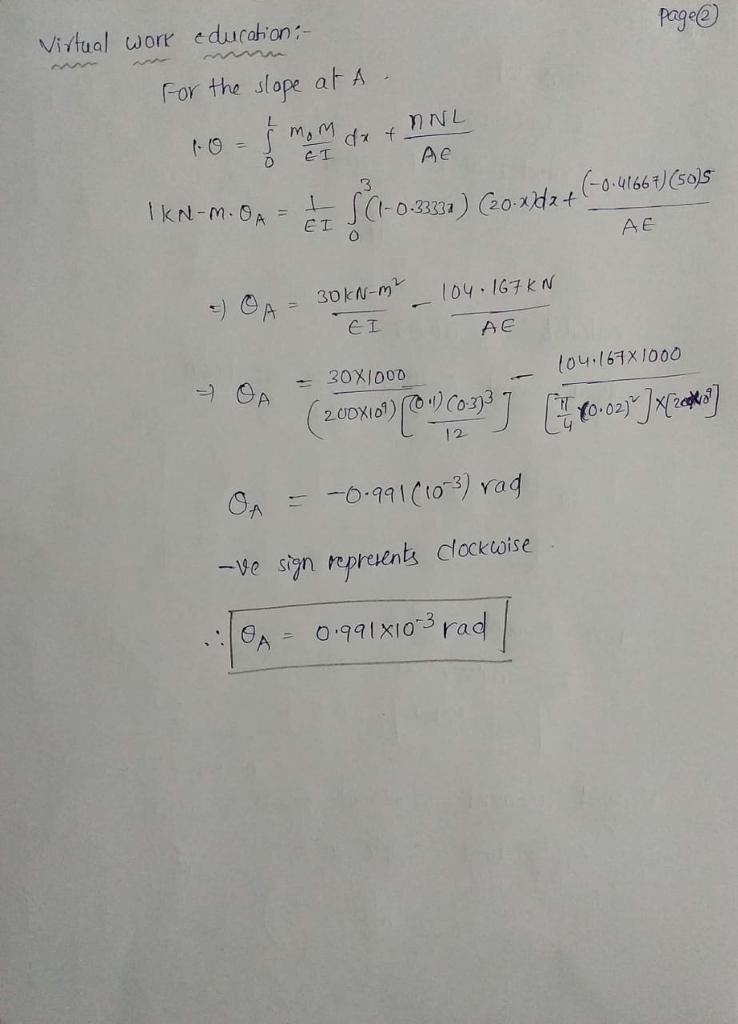 page②
Virtual work education:-
For the slope at A.
1·θ = ∫₀ᴸ m₀M/EI dx + nNL/AE
1 kN-m·θA = 1/EI ∫₀³ (1-0.3333x) (20·x)dx + (-0.41667)(50)5/AE
=) θA = 30kN-m²/EI - 104.167kN/AE
⇒ θA = 30X1000/(200X10⁹)[(0.1)(0.3)³/12] - 104.167X1000/[π/4 (0.02)²]X[200X10⁹]
θA = -0.991(10⁻³) rad
-ve sign represents clockwise.
∴ θA = 0.991X10⁻³ rad